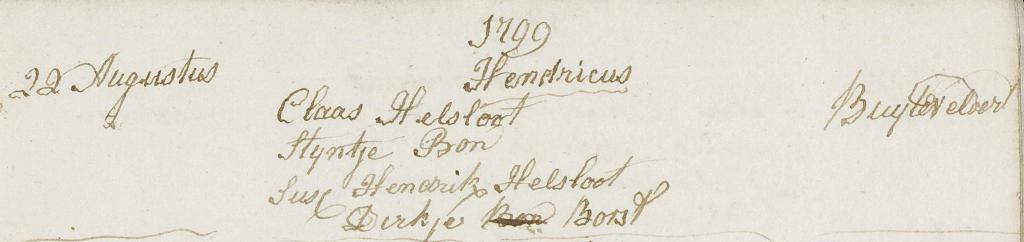 1799
22 Augustus Hendricus
Claas Helsloot Buyteveldert
Styntje Bon
Sus Hendrik Helsloot
Dirkje Bon Borst